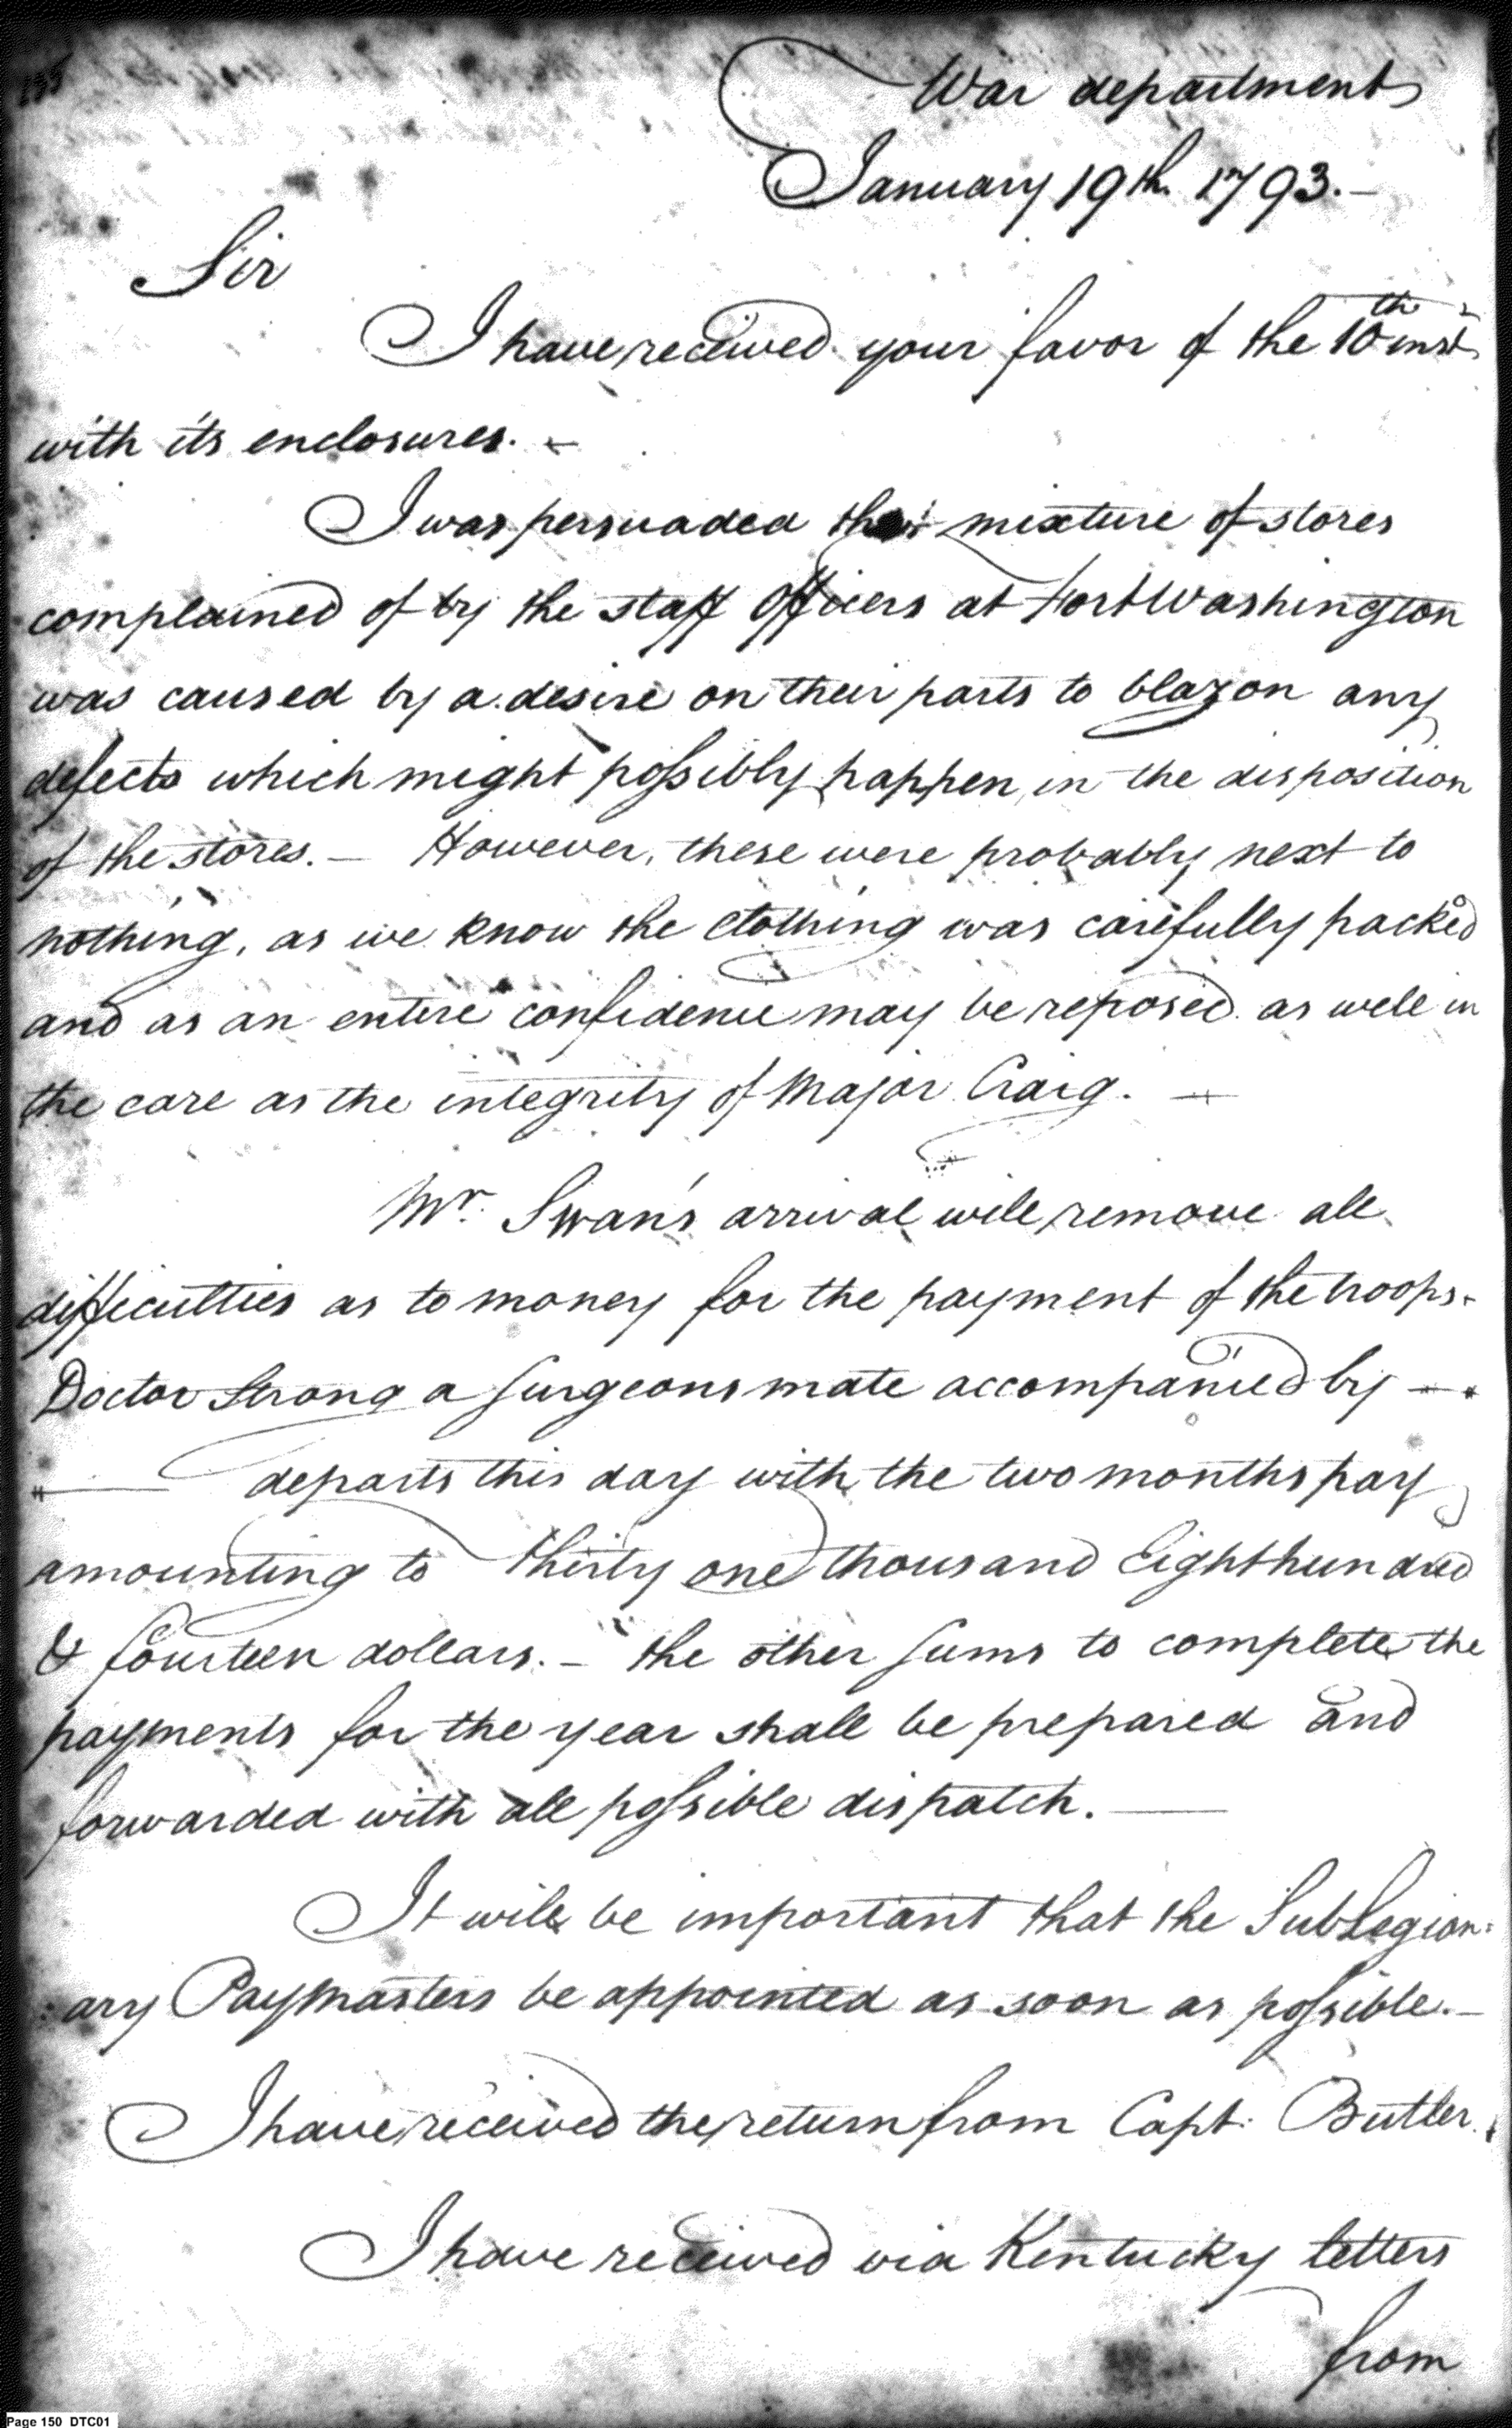 135
War department
January 19th. 1793.—
Sir
I have received your favor of the 10th inst
with its enclosures. —
I was persuaded mixture of stores
complained of by the staff Officers at Fort Washington
was caused by a desire on their parts to blazon any
defects which might possibly happen, in the disposition
of the stores.— However, these were probably next to
nothing, as we know the Clothing was carefully packed
and as an entire confidence may be reposed as well in
the care as the integrity of Major Craig. —
Mr. Swan's arrival will remove all
difficulties as to money for the payment of the troops.
Doctor Strong a Surgeons mate accompanied by —
— departs this day with the two months pay
amounting to thirty one thousand Eight hundred
& fourteen dollars.— the other sums to complete the
payments for the year shall be prepared and
forwarded with all possible dispatch. —
It will be important that the SubLegion:
:ary Paymasters be appointed as soon as possible.—
I have received the return from Capt: Butler.
I have received via Kentucky letters
from
Page 150 DTC01